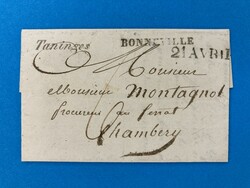 Taninges BONNEVILLE
21 AVRIL
Monsieur
Monsieur Montagnol
procureur au Senat
Chambery